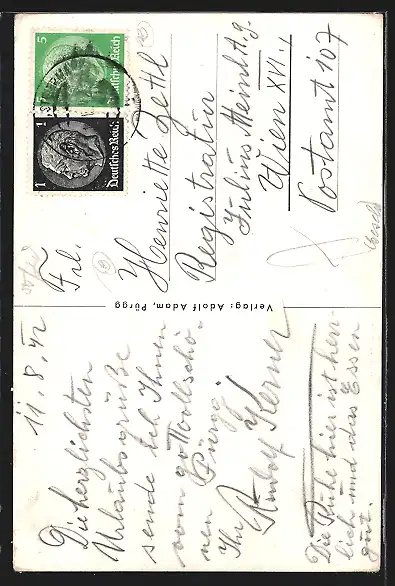 11. 8. 42
Die herzlichsten
Urlaubsgrüße
sende ich Ihnen
vom gottvollschö-
nen Pürgg!
Ihr
Rudolf Kerner
Die Ruhe hier ist herr-
lich und das Essen
gut.
Verlag: Adolf Adam, Pürgg
5
Deutsches Reich
1
1
Deutsches Reich
Frl.
Henriette Jettl
Registratur
Julius Meinl A.G.
Wien XVI.,
Postamt 107